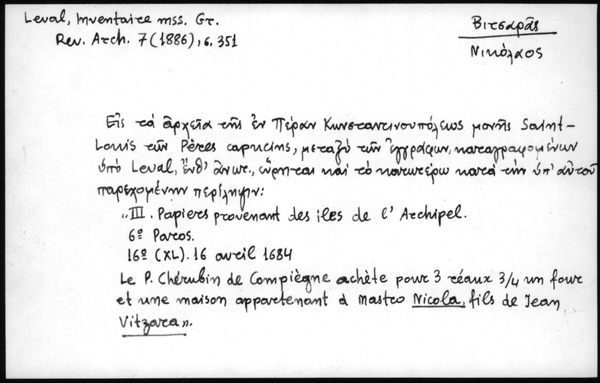 Leval, Inventaire mss. Gr.
Rev. Arch. 7 (1886), σ. 351
Βιτσαρᾶς
Νικόλαος
Εἰς τά ἀρχεῖα τῆς ἐν Πέραν Κωνσταντινουπόλεως μονῆς Saint-
Louis τῶν Pères capucins, μεταξύ τῶν ἐγγράφων, καταγραφομένων
ὑπό Leval, ἔνθ' ἄνωτ., εὕρηται καί τό κατωτέρω κατά τήν ὑπ' αὐτοῦ
παρεχομένην περίληψιν:
„III. Papiers provenant des iles de l'Archipel.
6º Paros.
16º (XL). 16 avril 1684
Le P. Chérubin de Compiègne achète pour 3 réaux 3/4 un four
et une maison appartenant à Mastro Nicola, fils de Jean
Vitzara».